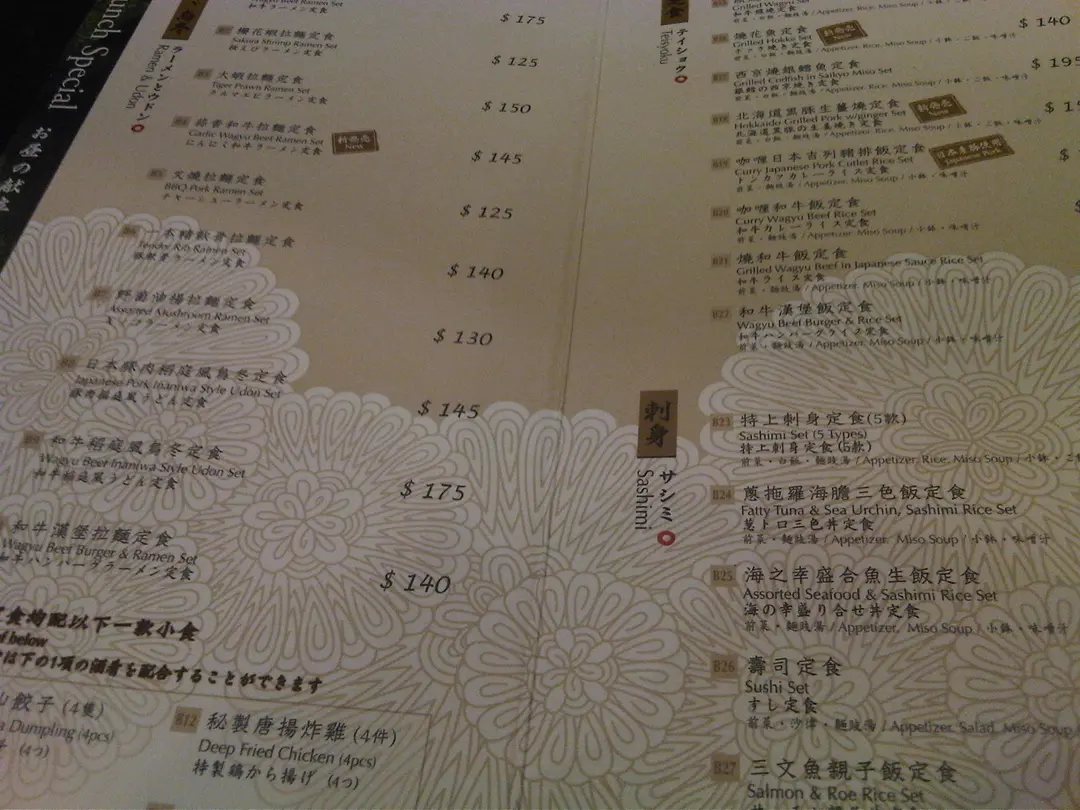 unch Special
お昼の献立
ラーメンとウドン
Ramen & Udon
Wagyu Beef Ramen Set
和牛ラーメン定食
$ 175
櫻花蝦拉麵定食
Sakura Shrimp Ramen Set
桜えびラーメン定食
$ 125
B3 大蝦拉麵定食
Tiger Prawn Ramen Set
クルマエビラーメン定食
$ 150
B4 蒜香和牛拉麵定食
Garlic Wagyu Beef Ramen Set
にんにく和牛ラーメン定食
新發売
New
$ 145
B5 叉燒拉麵定食
BBQ Pork Ramen Set
チャーシューラーメン定食
$ 125
B6 一本豬軟骨拉麵定食
Tender Rib Ramen Set
豚軟骨ラーメン定食
$ 140
B7 野菌油揚拉麵定食
Assorted Mushroom Ramen Set
キノコラーメン定食
$ 130
B8 日本豚肉稻庭風烏冬定食
Japanese Pork Inaniwa Style Udon Set
豚肉稲庭風うどん定食
$ 145
B9 和牛稻庭風烏冬定食
Wagyu Beef Inaniwa Style Udon Set
和牛稲庭風うどん定食
$ 175
和牛漢堡拉麵定食
Wagyu Beef Burger & Ramen Set
和牛ハンバーグラーメン定食
$ 140
定食均配以下一款小食
of below
は下の1項の酒肴を配合することができます
山餃子 (4隻)
a Dumpling (4pcs)
(4つ)
B12 秘製唐揚炸雞 (4件)
Deep Fried Chicken (4pcs)
特製鶏から揚げ (4つ)
定食
テイショク
Teisyoku
Grilled Wagyu Set
和牛焼定食
前菜・白飯・麵豉湯 / Appetizer, Rice, Miso Soup / 小鉢・ご飯・味噌汁
$ 140
B16 燒花魚定食
Grilled Hokke Set
ホッケ焼き定食
前菜・白飯・麵豉湯 / Appetizer, Rice, Miso Soup / 小鉢・ご飯・味噌汁
新發売
New
$ 195
B17 西京燒銀鱈魚定食
Grilled Codfish in Saikyo Miso Set
銀鱈の西京焼き定食
前菜・白飯・麵豉湯 / Appetizer, Rice, Miso Soup / 小鉢・ご飯・味噌汁
B18 北海道黑豚生薑燒定食
Hokkaido Grilled Pork w/ginger Set
北海道黒豚の生姜焼き定食
前菜・白飯・麵豉湯 / Appetizer, Rice, Miso Soup / 小鉢・ご飯・味噌汁
新發売
New
B19 咖喱日本吉列豬排飯定食
Curry Japanese Pork Cutlet Rice Set
トンカツカレーライス定食
前菜・麵豉湯 / Appetizer, Miso Soup / 小鉢・味噌汁
日本產豚使用
Japanese Pork
B20 咖喱和牛飯定食
Curry Wagyu Beef Rice Set
和牛カレーライス定食
前菜・麵豉湯 / Appetizer, Miso Soup / 小鉢・味噌汁
B21 燒和牛飯定食
Grilled Wagyu Beef in Japanese Sauce Rice Set
和牛ライス定食
前菜・麵豉湯 / Appetizer, Miso Soup / 小鉢・味噌汁
B22 和牛漢堡飯定食
Wagyu Beef Burger & Rice Set
和牛ハンバーグライス定食
前菜・麵豉湯 / Appetizer, Miso Soup / 小鉢・味噌汁
刺身
サシミ
Sashimi
B23 特上刺身定食(5款)
Sashimi Set (5 Types)
特上刺身定食 (5款)
前菜・白飯・麵豉湯 / Appetizer, Rice, Miso Soup / 小鉢・ご飯
B24 蔥拖羅海膽三色飯定食
Fatty Tuna & Sea Urchin, Sashimi Rice Set
葱トロ三色丼定食
前菜・麵豉湯 / Appetizer, Miso Soup / 小鉢・味噌汁
B25 海之幸盛合魚生飯定食
Assorted Seafood & Sashimi Rice Set
海の幸盛り合せ丼定食
前菜・麵豉湯 / Appetizer, Miso Soup / 小鉢・味噌汁
B26 壽司定食
Sushi Set
すし定食
前菜・沙津・麵豉湯 / Appetizer, Salad, Miso Soup
B27 三文魚親子飯定食
Salmon & Roe Rice Set